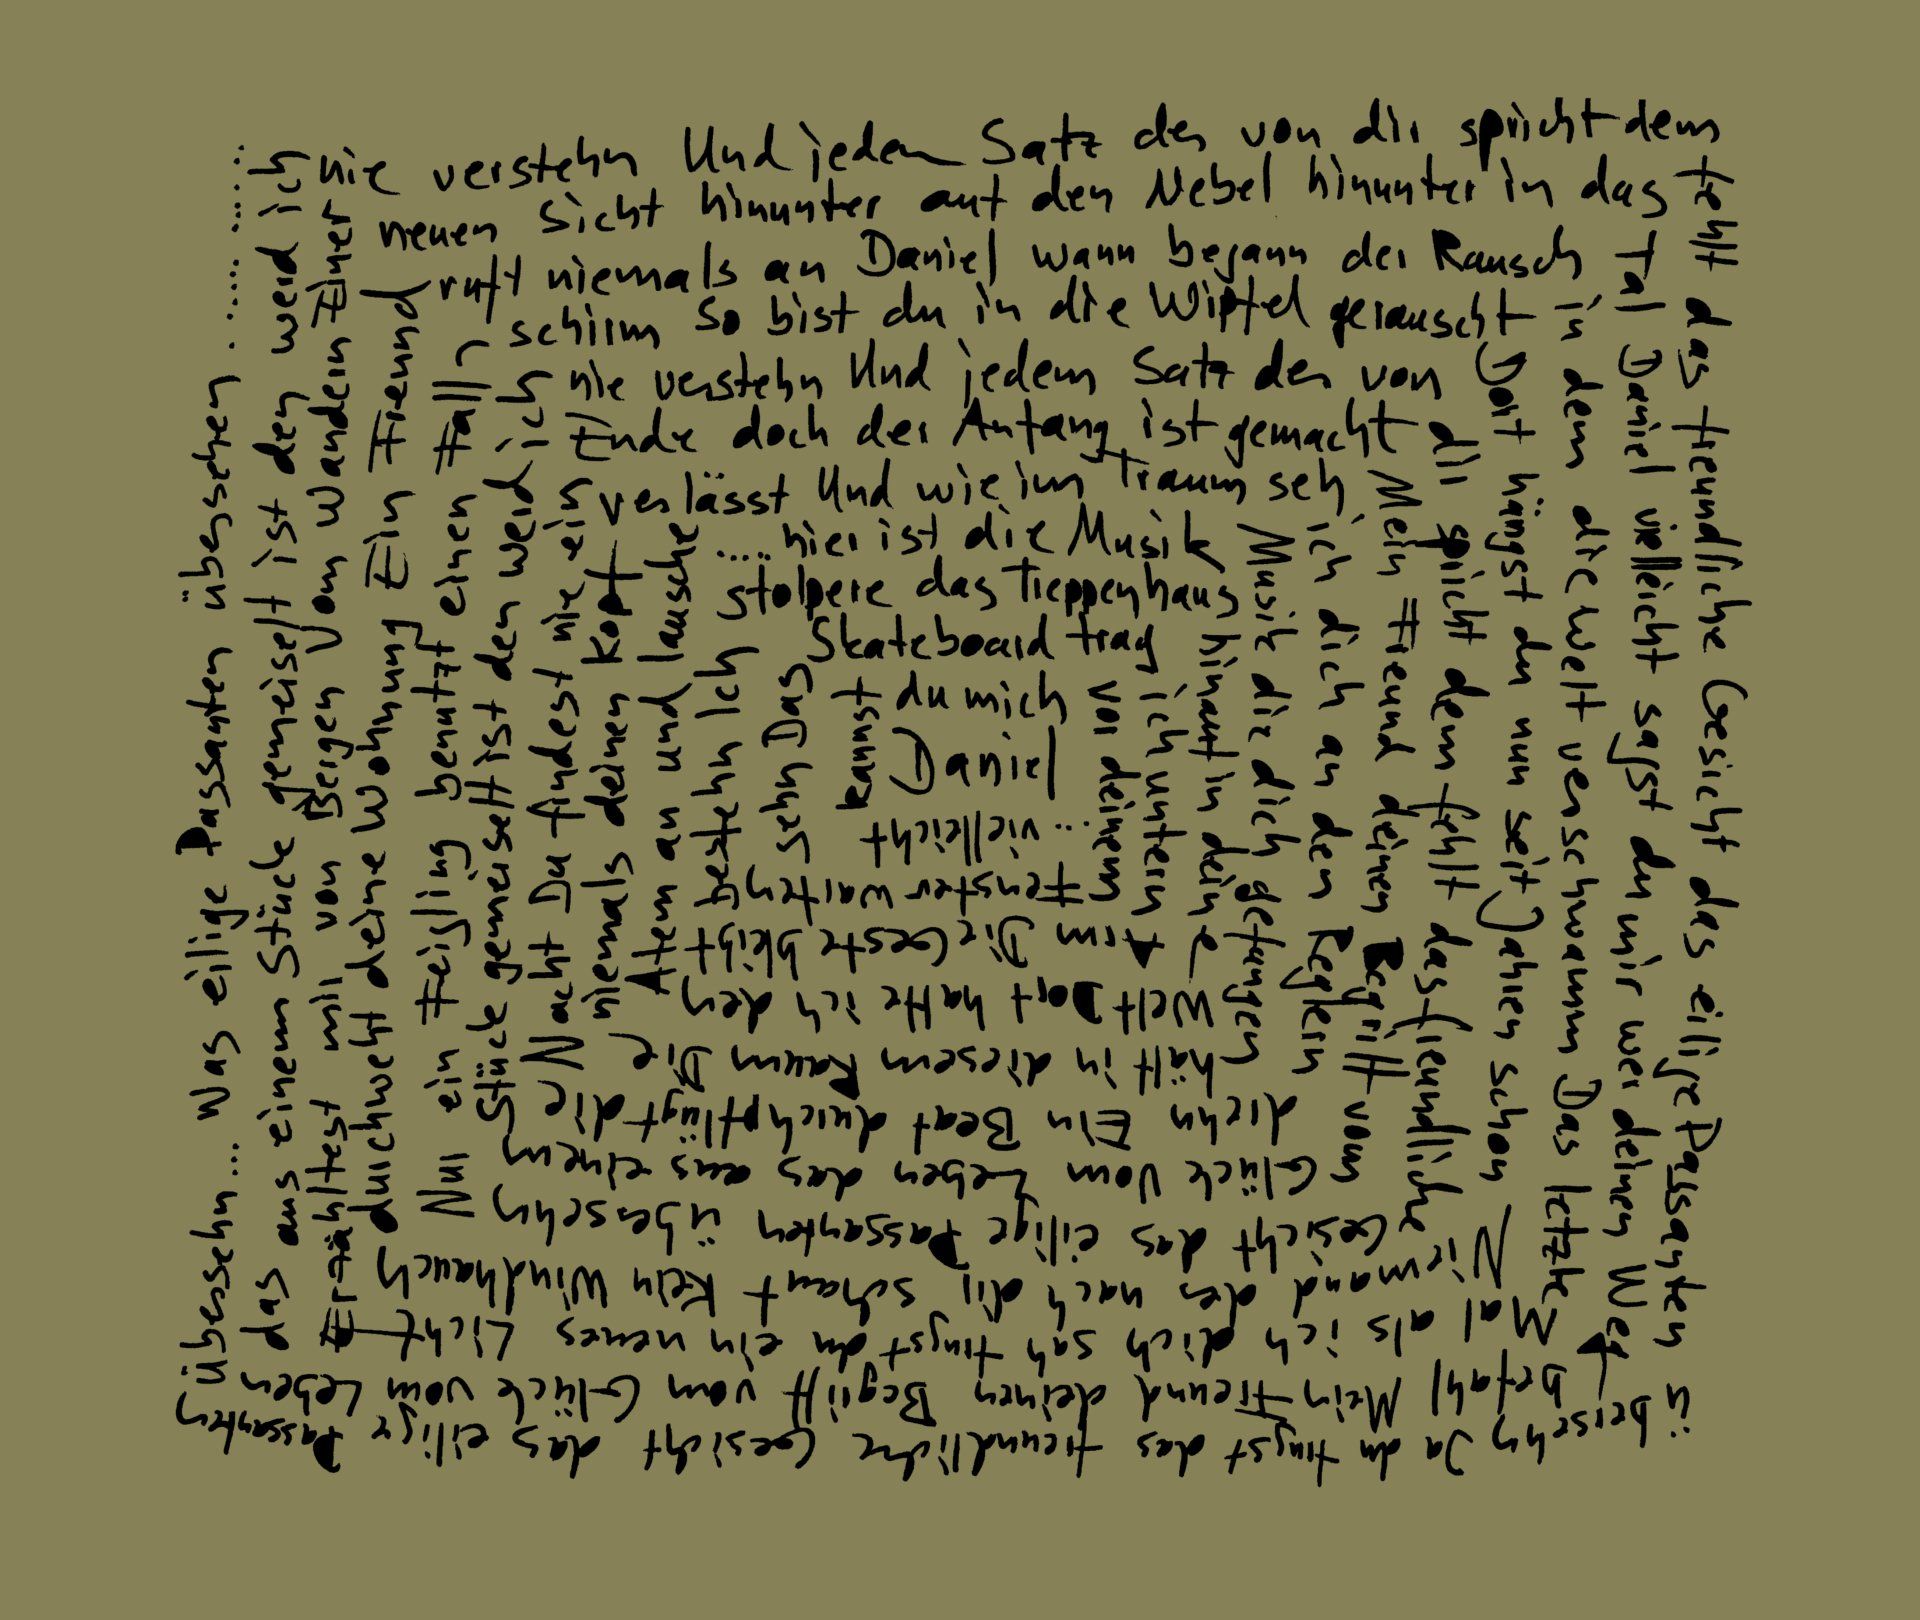 Daniel
... vielleicht
kannst
du mich
vor deinem
Fenster warten
sehn Das
Skateboard trag
ich unterm
Arm Die Geste bleibt
bestehn Ich
stolpere das Treppenhaus
hinauf in deine
Welt Dort hatte ich den
Atem an und lausche
..... hier ist die Musik
Musik die dich gefangen
hält in diesem Raum Die
niemals deinen Kopf
verlässt Und wie im Traum seh
ich dich an den Reglern
drehn Ein Beat durchpflügt die
Nacht Du findest nie ein
Ende doch der Anfang ist gemacht
Mein Freund deinen Begriff vom
Glück vom Leben das aus einem
Stück gemeiselt ist den werd ich
nie verstehn Und jedem Satz der von
dir spricht dem fehlt das freundliche
Gesicht das eilige Passanten übersehn
Nur ein Feigling benutzt einen Fall
schirm So bist du in die Wipfel gerauscht
Dort hängst du nun seit Jahren schon
Niemand der nach dir schaut Kein Windhauch
durchweht deine Wohnung Ein Freund
ruft niemals an Daniel wann begann der Rausch
in dem die Welt verschwamm Das letzte
Mal als ich dich sah fingst du ein neues Licht
Erzähltest mir von Bergen Vom Wandern Einer
neuen Sicht hinunter auf den Nebel hinunter in das
Tal Daniel vielleicht sagst du mir wer deinen Weg
befahl Mein Freund deinen Begriff vom Glück vom Leben
das aus einem Stück gemeiselt ist den werd ich
nie verstehn Und jedem Satz der von dir spricht dem
fehlt das freundliche Gesicht das eilige Passanten
übersehn Ja du fingst das freundliche Gesicht das eilige Passanten
übersehn... Was eilige Passanten übersehen ...........